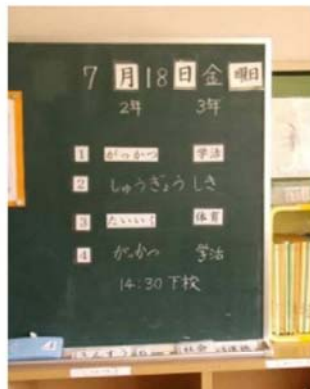 7月18日金曜日
2年 3年
1 がっかつ 学活
2 しゅうぎょうしき
3 たいいく 体育
4 がっかつ 学活
14:30下校
社会